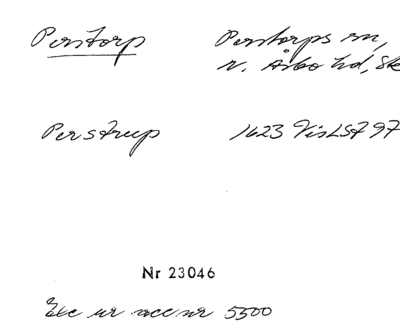 Perstorp Perstorps sn,
N. Åsbo hd, Sk
Perstrup 1623 VisLSt 97
Nr 23046
Exc ur acc nr 5500